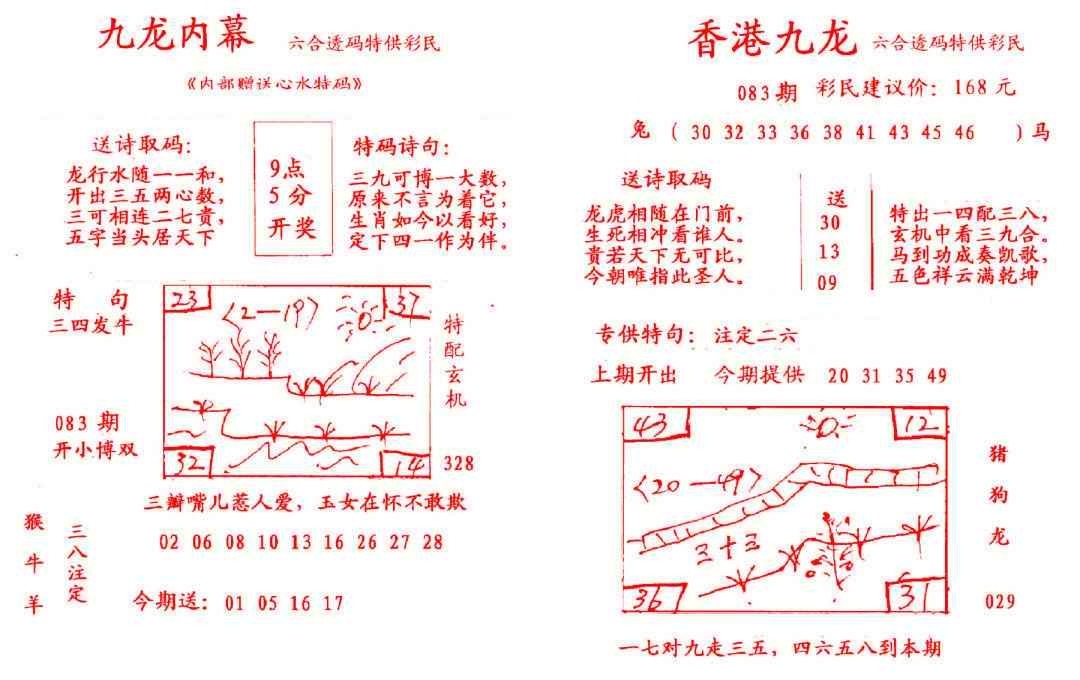 九龙内幕 六合透码特供彩民
《内部赠送心水特码》
送诗取码：
龙行水随一一和，
开出三五两心数，
三可相连二七贵，
五字当头居天下
9点
5分
开奖
特码诗句：
三九可博一大数，
原来不言为着它，
生肖如今以看好，
定下四一作为伴。
特句
三四发牛
083期
开小博双
23
〈2—19〉
37
32
14
特配玄机
328
三瓣嘴儿惹人爱，玉女在怀不敢欺
猴牛羊
三八注定
02 06 08 10 13 16 26 27 28
今期送：01 05 16 17
香港九龙 六合透码特供彩民
083期 彩民建议价：168元
兔（30 32 33 36 38 41 43 45 46 ）马
送诗取码
龙虎相随在门前，
生死相冲看谁人。
贵若天下无可比，
今朝唯指此圣人。
送
30
13
09
特出一四配三八，
玄机中看三九合。
马到功成奏凯歌，
五色祥云满乾坤
专供特句：注定二六
上期开出 今期提供 20 31 35 49
43
12
〈20—49〉
三十三
36
31
猪狗龙
029
一七对九走三五，四六五八到本期